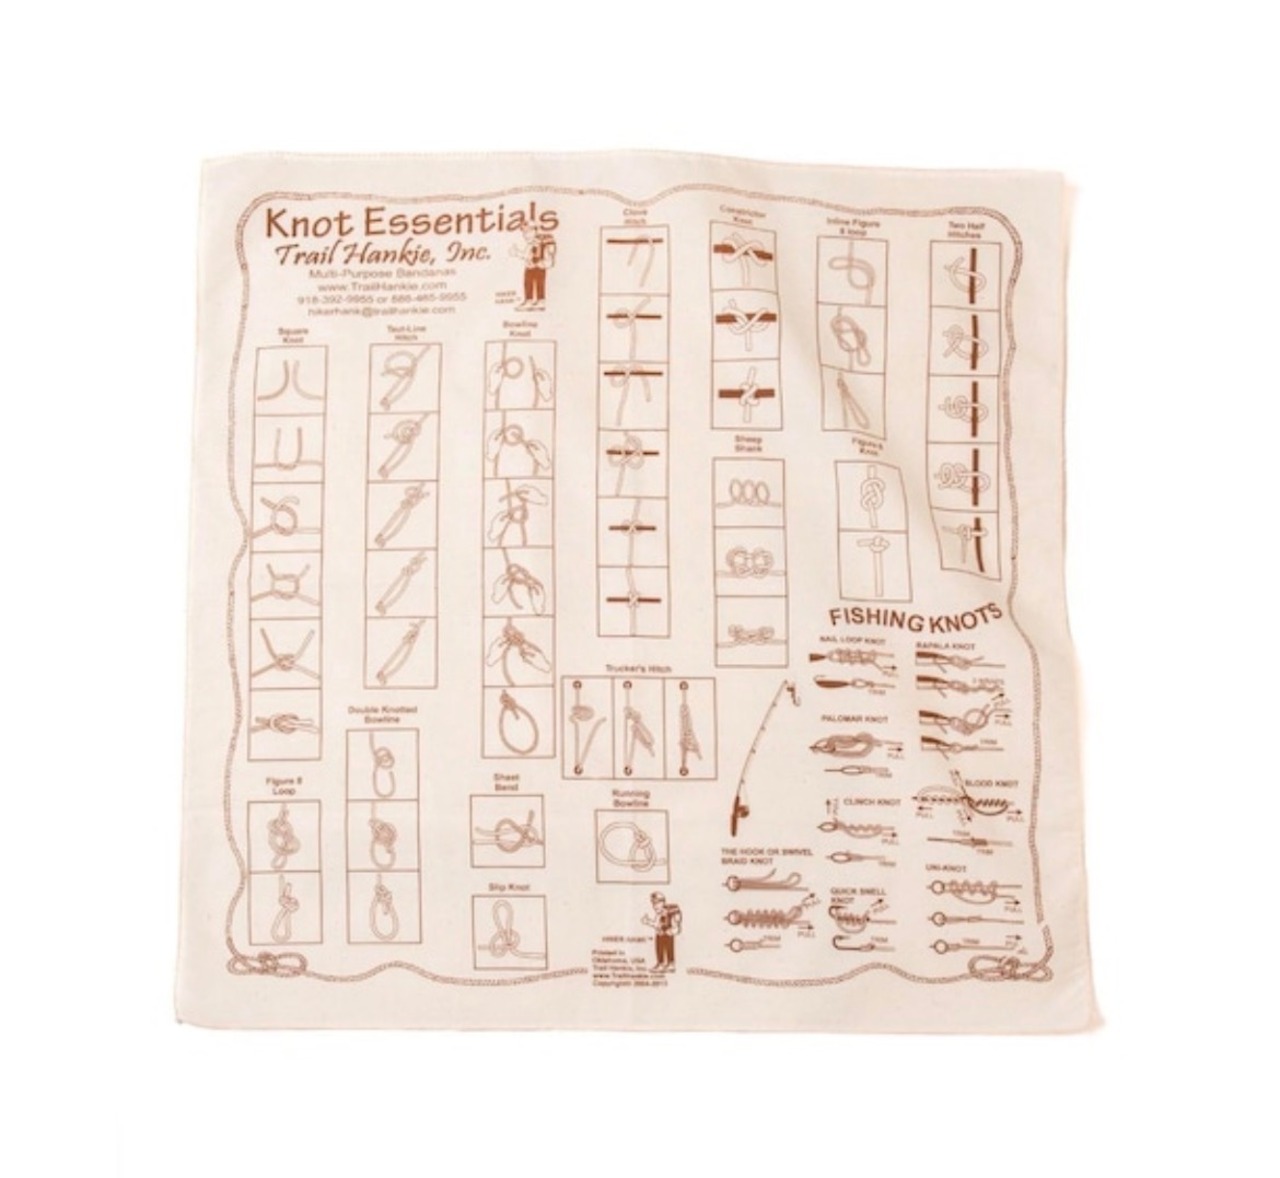 Knot Essentials
Trail Hankie, Inc.
Multi-Purpose Bandanas
www.TrailHankie.com
918-392-9955 or 886-465-9955
hikerhank@trailhankie.com
HIKER
HANK™
Square
Knot
Taut-Line
Hitch
Bowline
Knot
Clove
Hitch
Constrictor
Knot
Inline Figure
8 loop
Two Half
Hitches
Sheep
Shank
Figure 8
Knot
Trucker's Hitch
Double Knotted
Bowline
Figure 8
Loop
Sheet
Bend
Running
Bowline
Slip Knot
HIKER HANK™
Printed in
Oklahoma, USA
Trail Hankie, Inc.
www.TrailHankie.com
FISHING KNOTS
NAIL LOOP KNOT
PULL
TRIM
RAPALA KNOT
PULL
PULL
TRIM
PALOMAR KNOT
PULL
TRIM
BLOOD KNOT
PULL
PULL
TRIM
TRIM
CLINCH KNOT
PULL
TRIM
THE HOOK OR SWIVEL
BRAID KNOT
PULL
PULL
TRIM
QUICK SNELL
KNOT
PULL
PULL
TRIM
UNI-KNOT
PULL
TRIM